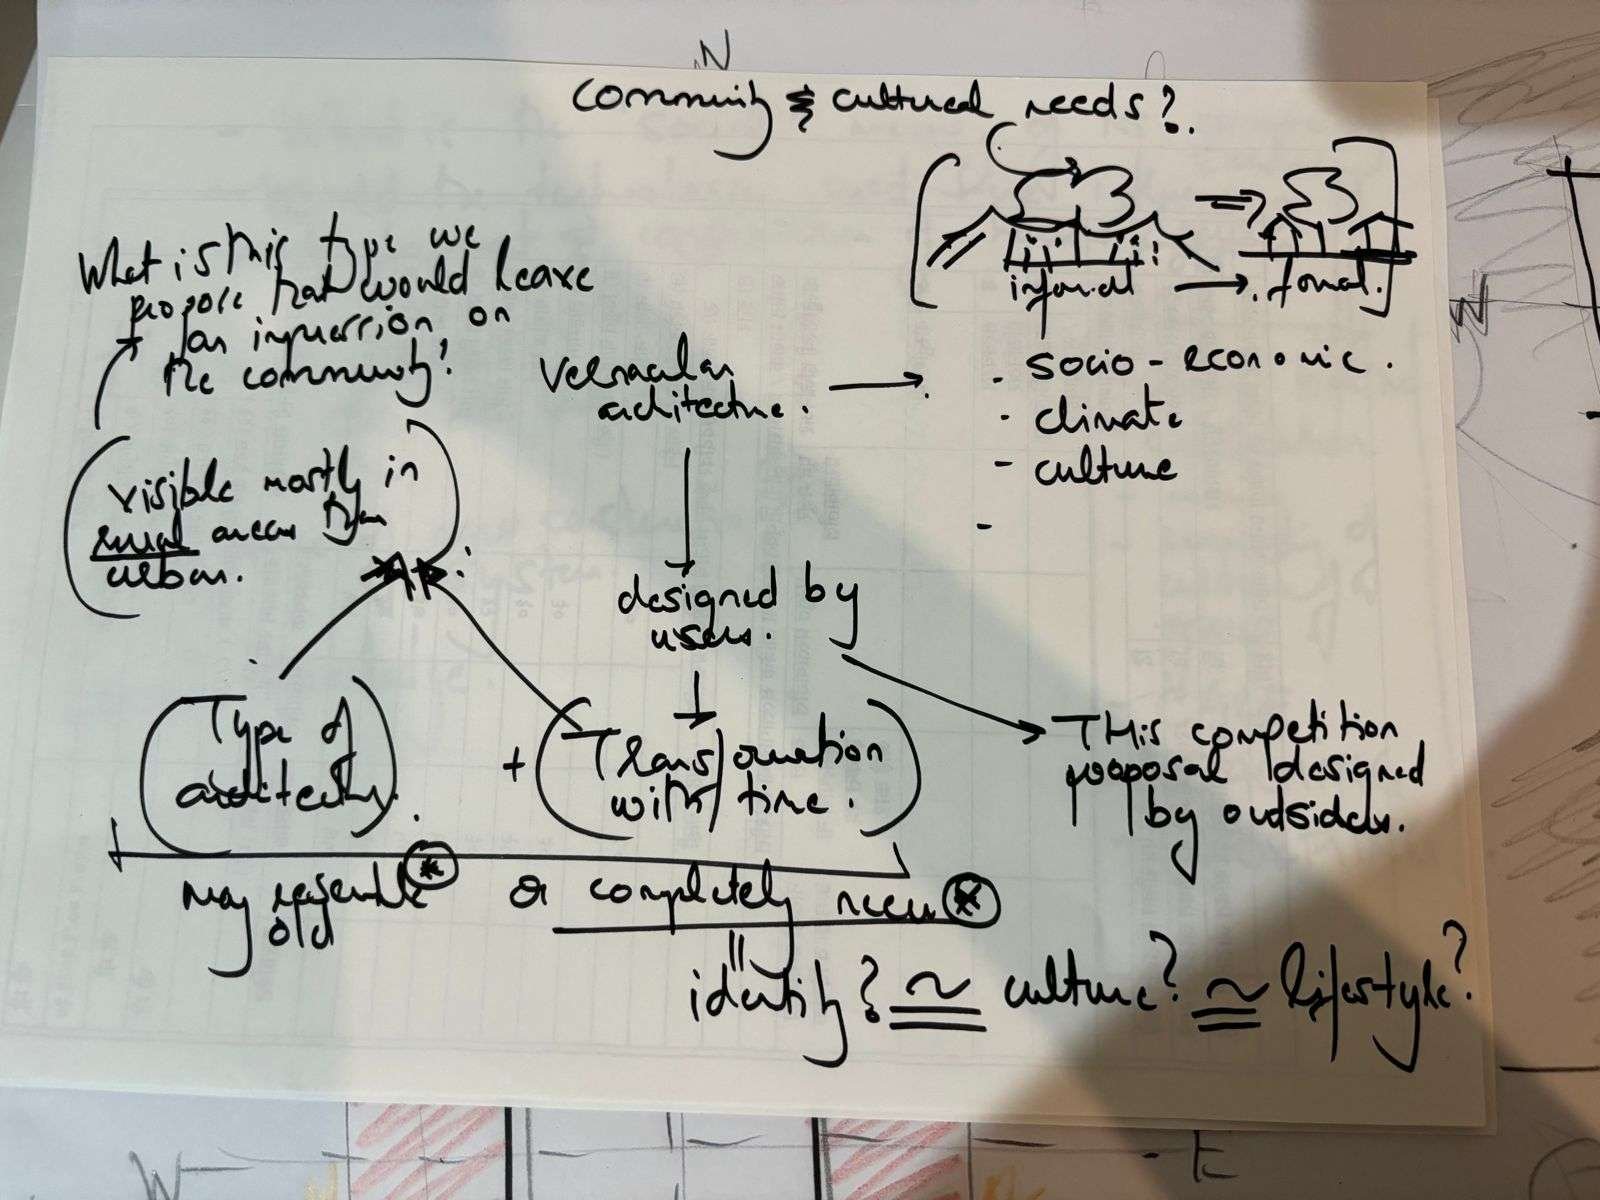 N
community & cultural needs?
What is this type we
propose that would leave
an impression on
the community?
informal → formal.
N
vernacular
architecture. →
- socio-economic.
- climate
- culture
-
visible mostly in
rural areas than
urban.
designed by
users.
Type of
architecture.
+
Transformation
with time.
THis competition
proposal designed
by outsiders.
may resemble * or completely new *
old
identity? ≅ culture? ≅ lifestyle?